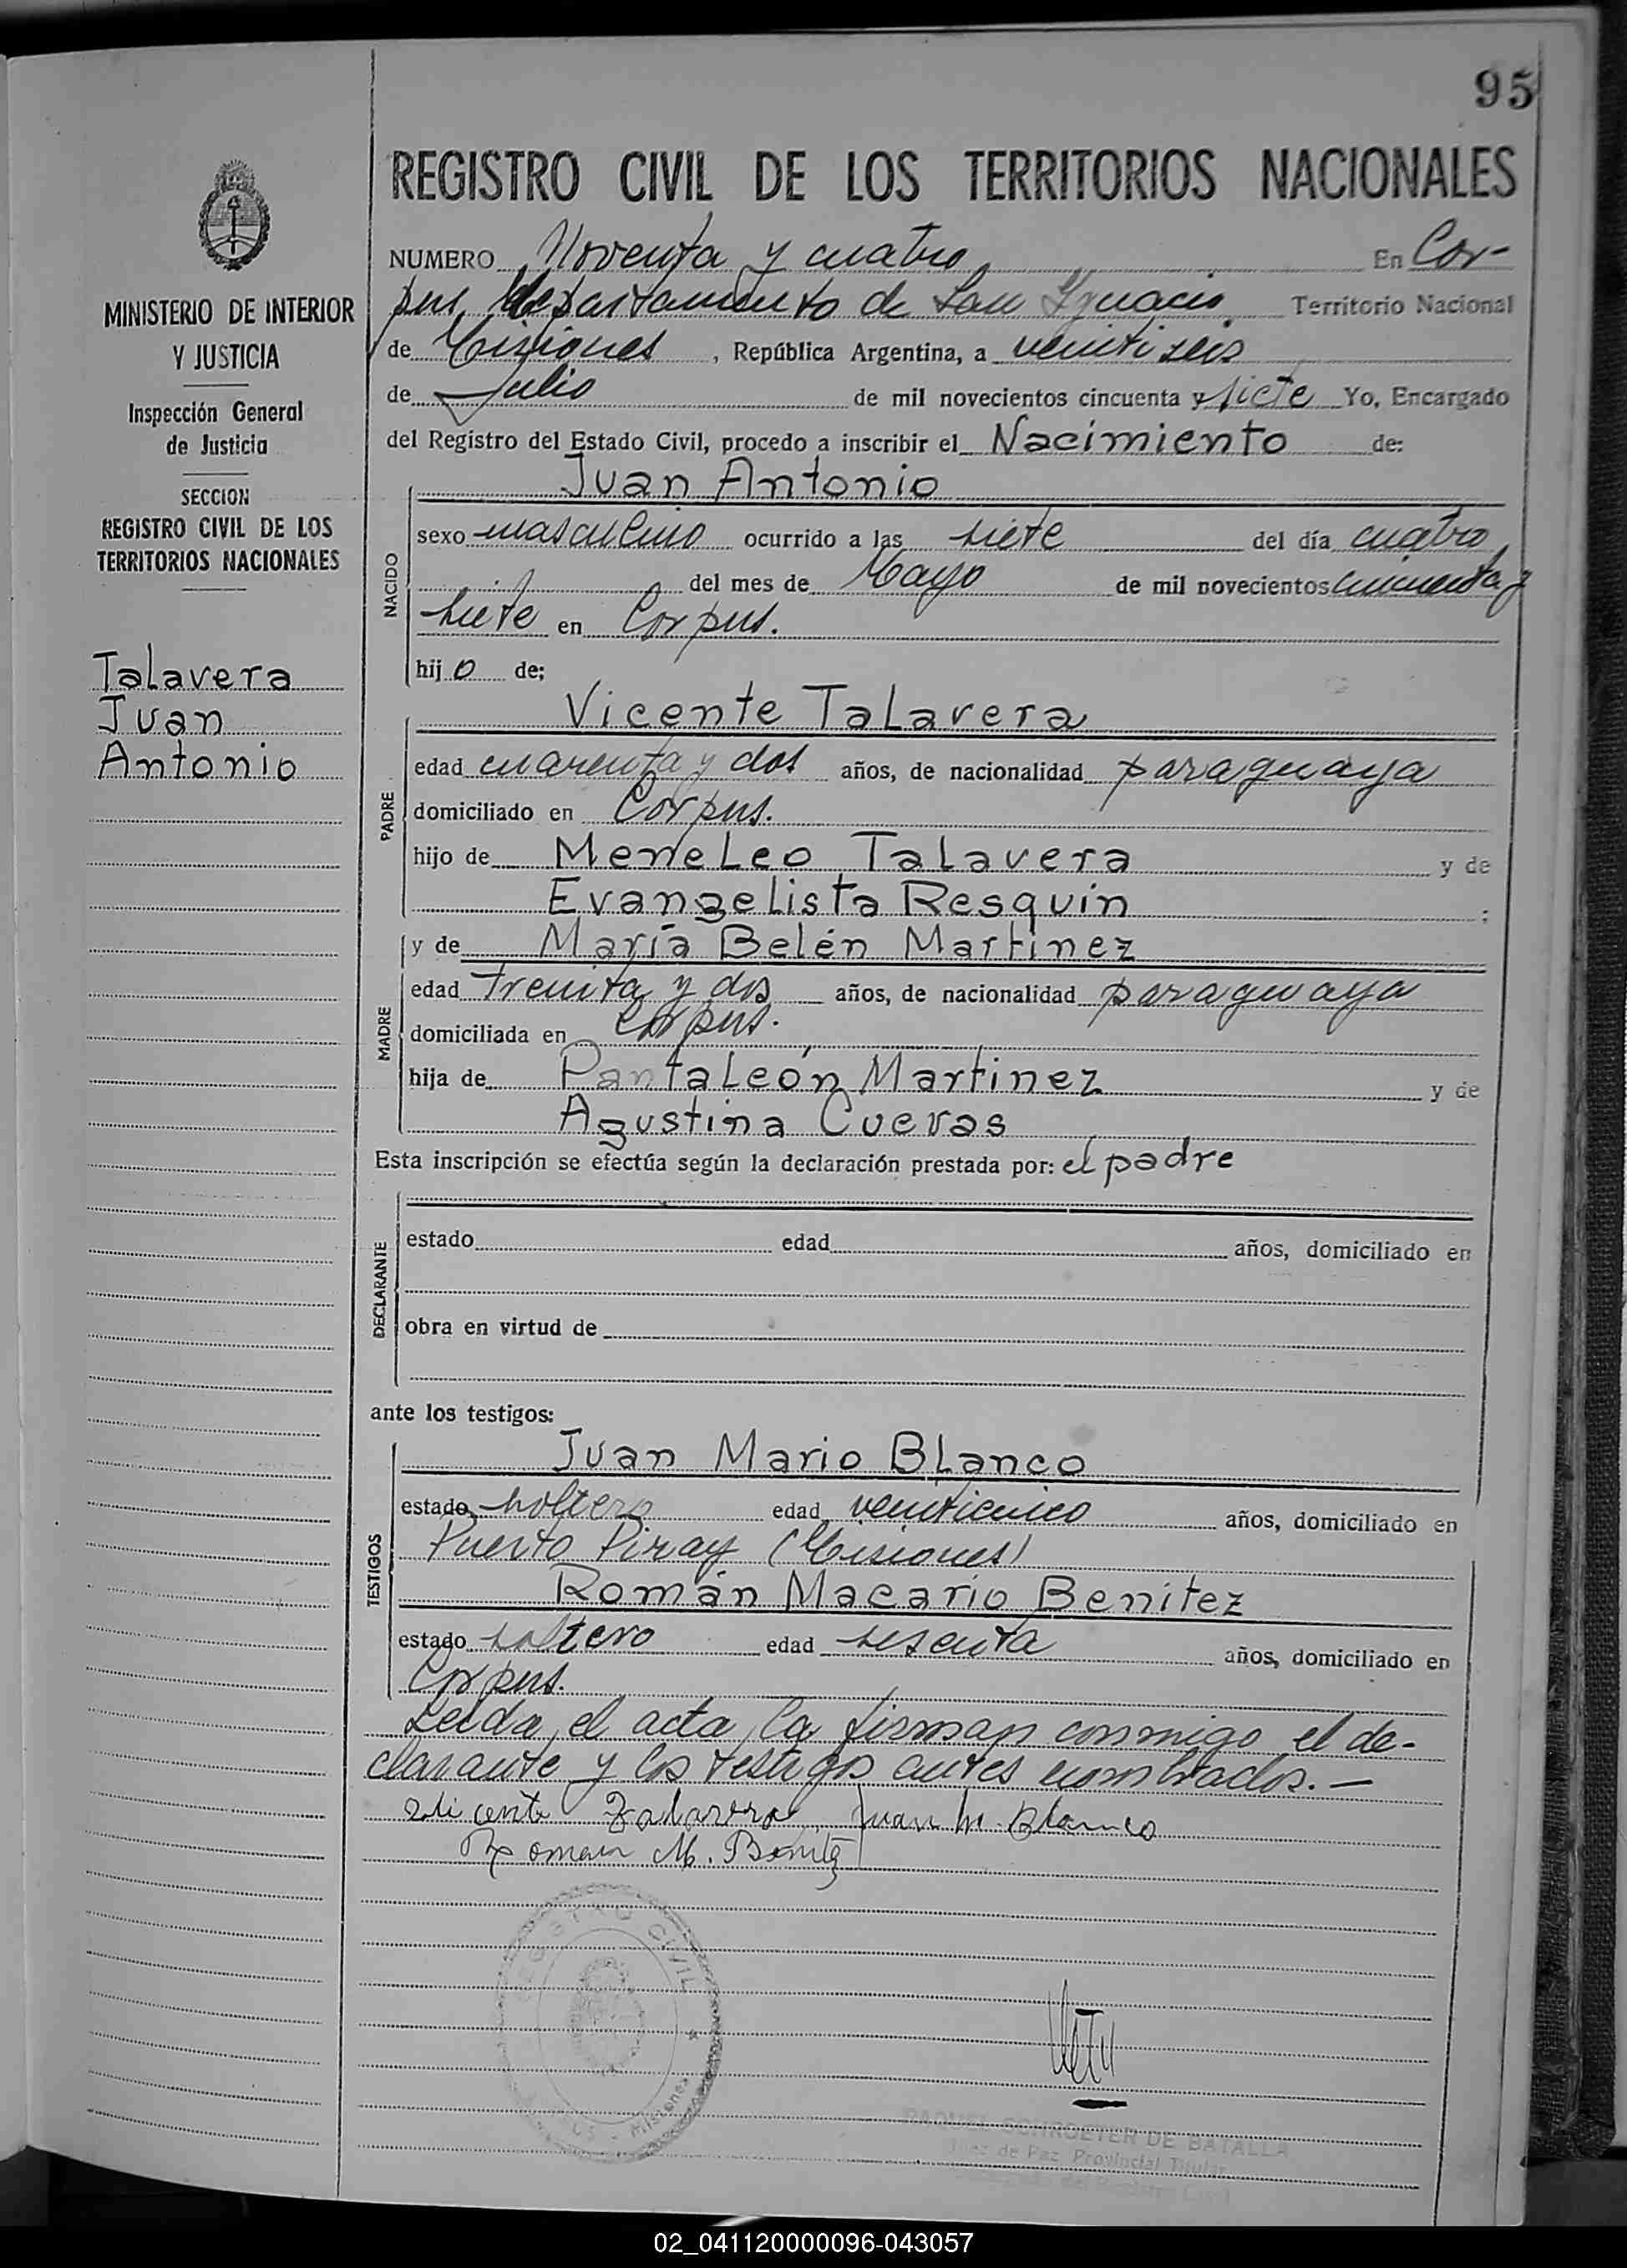 95
REGISTRO CIVIL DE LOS TERRITORIOS NACIONALES
MINISTERIO DE INTERIOR
Y JUSTICIA
Inspección General
de Justicia
SECCION
REGISTRO CIVIL DE LOS
TERRITORIOS NACIONALES
Talavera
Juan
Antonio
NUMERO Noventa y cuatro En Cor-
pus, departamento de San Ygnacio Territorio Nacional
de Misiones, República Argentina, a veintiseis
de Julio de mil novecientos cincuenta y siete Yo, Encargado
del Registro del Estado Civil, procedo a inscribir el Nacimiento de:
NACIDO
Juan Antonio
sexo masculino ocurrido a las siete del día cuatro
del mes de Mayo de mil novecientos cincuenta y
siete en Corpus.
hijo de;
PADRE
Vicente Talavera
edad cuarenta y dos años, de nacionalidad paraguaya
domiciliado en Corpus.
hijo de Meneleo Talavera y de
Evangelista Resquin ;
MADRE
y de María Belén Martinez
edad treinta y dos años, de nacionalidad paraguaya
domiciliada en Corpus.
hija de Pantaleón Martinez y de
Agustina Cuevas
Esta inscripción se efectúa según la declaración prestada por: el padre
DECLARANTE
estado edad años, domiciliado en
obra en virtud de
ante los testigos:
TESTIGOS
Juan Mario Blanco
estado soltero edad veinticinco años, domiciliado en
Puerto Piray (Misiones)
Román Macario Benitez
estado soltero edad sesenta años, domiciliado en
Corpus.
Leída el acta, la firman conmigo el de-
clarante y los testigos antes nombrados.—
Vicente Talavera Juan M. Blanco
Roman M. Benitez
REGISTRO CIVIL
Misiones
RAQUEL SCHROETER DE BATALLA
Juez de Paz Provincial Titular
del Registro Civil
02_041120000096-043057